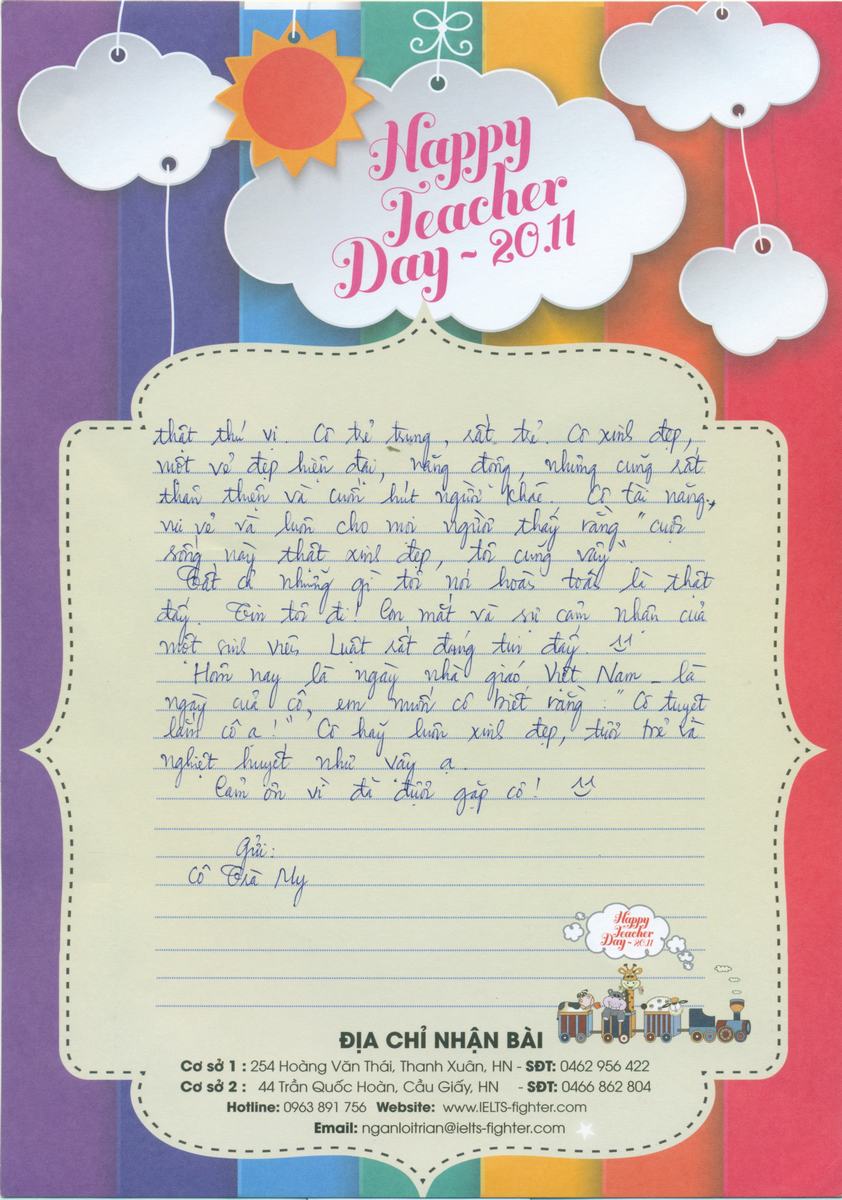 Happy
Teacher
Day ~ 20.11
thật thú vị. Cô trẻ trung, rất trẻ. Cô xinh đẹp,
một vẻ đẹp hiện đại, năng động, nhưng cũng rất
thân thiện và cuốn hút người khác. Cô tài năng,
vui vẻ và luôn cho mọi người thấy rằng "cuộc
sống này thật xinh đẹp, tôi cũng vậy".
Tất cả những gì tôi nói hoàn toàn là thật
đấy. Tin tôi đi! Con mắt và sự cảm nhận của
một sinh viên Luật rất đáng tin đấy.
Hôm nay là ngày nhà giáo Việt Nam - là
ngày của cô, em muốn cô biết rằng: "Cô tuyệt
lắm cô ạ!" Cô hãy luôn xinh đẹp, tươi trẻ và
nghiệt huyết như vậy ạ.
Cảm ơn vì đã được gặp cô!
Gửi:
Cô Trà My
Happy
Teacher
Day ~ 20.11
ĐỊA CHỈ NHẬN BÀI
Cơ sở 1 : 254 Hoàng Văn Thái, Thanh Xuân, HN - SĐT: 0462 956 422
Cơ sở 2 : 44 Trần Quốc Hoàn, Cầu Giấy, HN - SĐT: 0466 862 804
Hotline: 0963 891 756 Website: www.IELTS-fighter.com
Email: nganloitrian@ielts-fighter.com